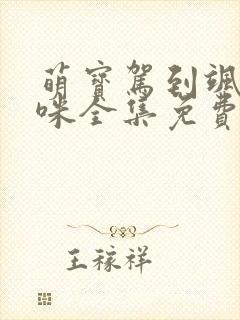 萌宝驾到飒
咪全集免费
王稼祥